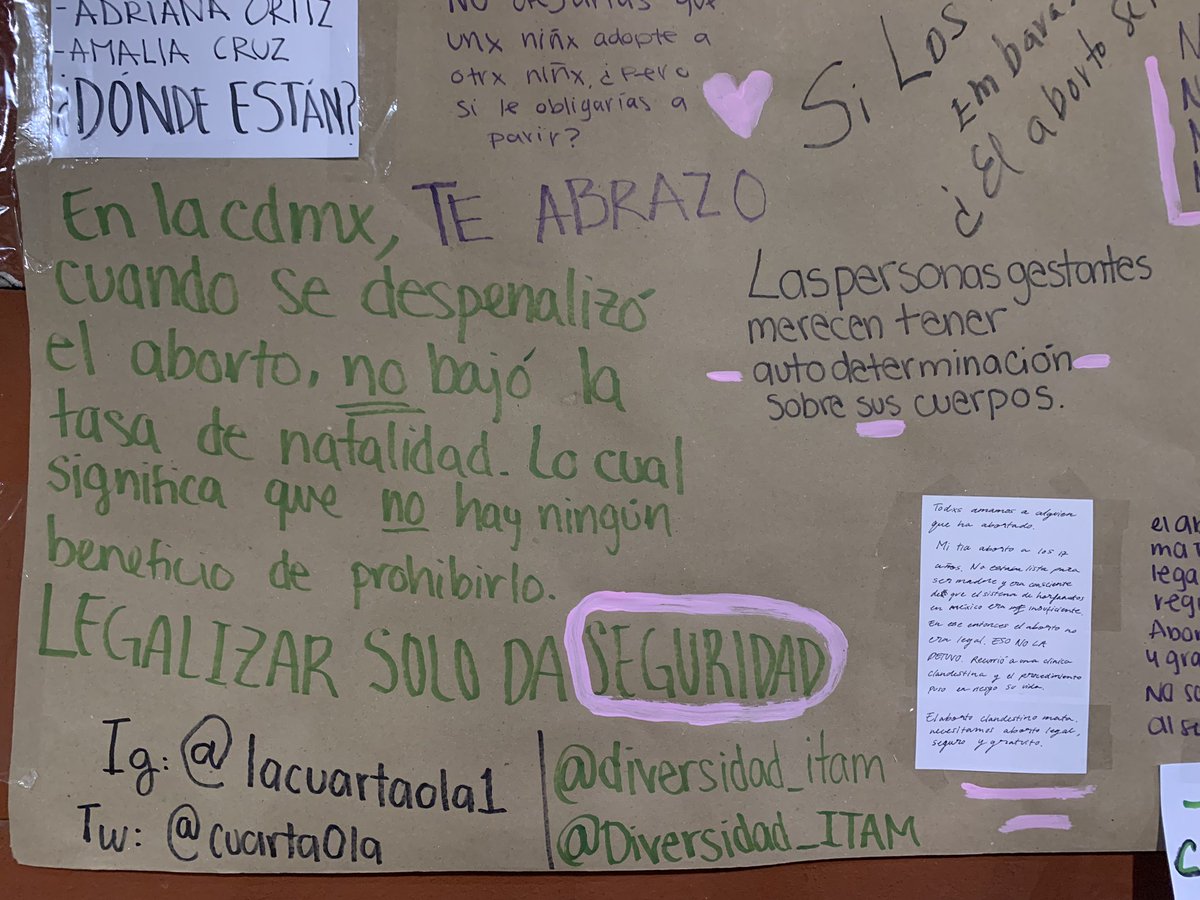 -ADRIANA ORTIZ
-AMALIA CRUZ
¿DÓNDE ESTÁN?
NO que
unx niñx adopte a
otrx niñx, ¿Pero
si le obligarías a
parir?
Si Los
Embara
¿El aborto se
En la cdmx,
cuando se despenalizó
el aborto, no bajó la
tasa de natalidad. Lo cual
significa que no hay ningún
beneficio de prohibirlo.
LEGALIZAR SOLO DA SEGURIDAD
TE ABRAZO
Las personas gestantes
merecen tener
autodeterminación
sobre sus cuerpos.
Todxs amamos a alguien
que ha abortado.
Mi tía aborto a los 17
años. No estaba lista para
ser madre y era consciente
de que el sistema de horfanatos
en méxico era muy insuficiente.
En ese entonces el aborto no
era legal. ESO NO LA
DETUVO. Recurrió a una clínica
clandestina y el procedimiento
puso en riesgo su vida.
El aborto clandestino mata,
necesitamos aborto legal,
seguro y gratuito.
el ab
ma
lega
regu
Abor
y gra
No so
al se
Ig: @lacuartaola1
Tw: @cuartaOla
@diversidad_itam
@Diversidad_ITAM